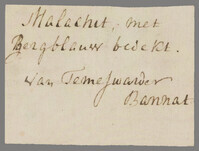 Malachit, met
Bergblauw bedekt.
van Temeswarder
Bannat